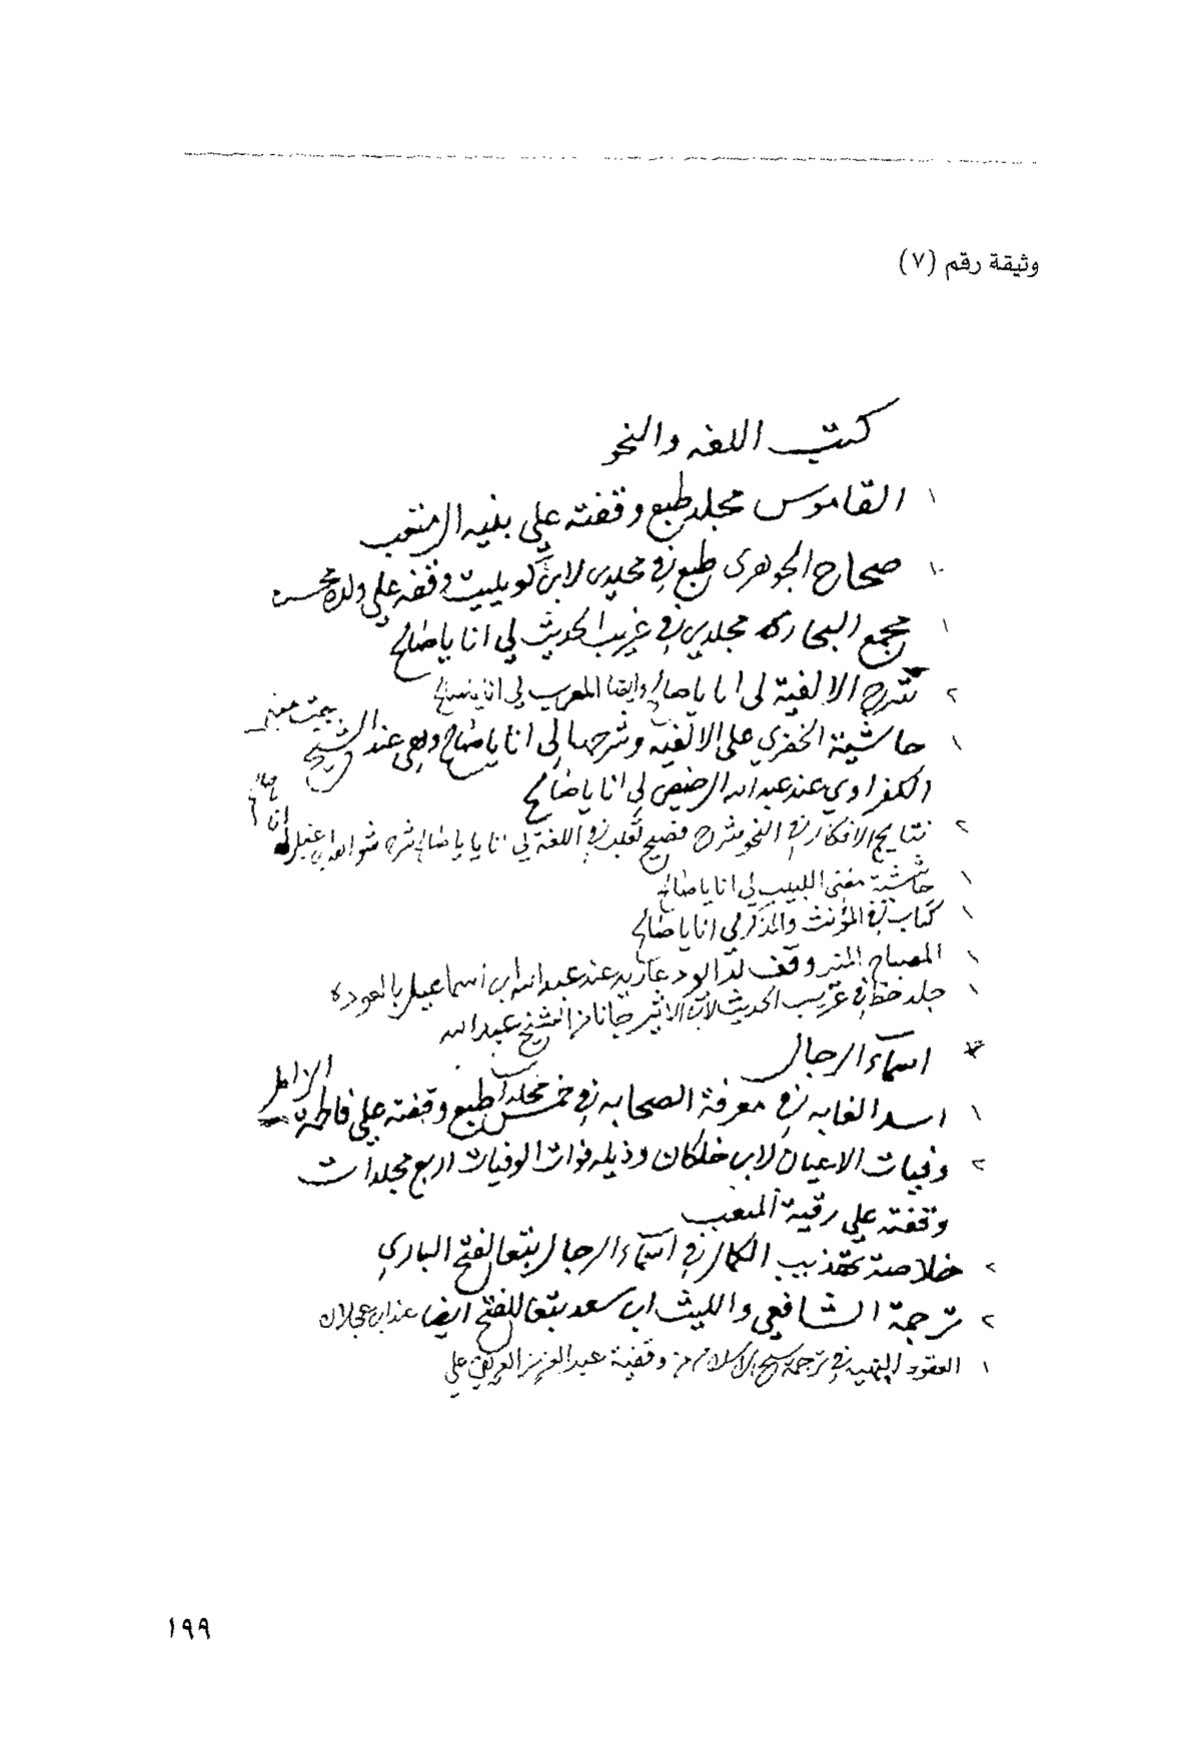 وثيقة رقم (٧)
كتب اللغه والنحو
١ القاموس مجلد طبع وقفته علي بنيه المنقب
١ صحاح الجوهرى طبع في مجلدين وقفه علي ولده محسن
١ مجمع البحار مجلدين في غريب الحديث لي انا يا صالح
٢ شرح الالفية لى انا يا صالح وايضا المعرب لي انا يا صالح
١ حاشية الخضري على الالفيه وشرحها لي انا يا صالح وهي عند الشيخ
الكفراوي عند عبد الله الرضيص لي انا يا صالح
٢ نتايج الافكار في النحو وشرح فصيح ثعلب في اللغة لي انا يا صالح شرح شواهد ابن عقيل
انا يا صالح
١ حاشية مغني اللبيب لي انا يا صالح
١ كتاب في المؤنث والمذكر لي انا يا صالح
١ المصباح المنير وقف عند عبد الله ابن اسماعيل بالعوده
١ جلد خط في غريب الحديث لابن الاثير جانا من الشيخ عبد الله
اسمآء الرجال
١ اسد الغابه في معرفة الصحابه في خمس مجلدات طبع وقفته علي فاطمة الزامل
٢ وفيات الاعيان لابن خلكان وذيله فوات الوفيات اربع مجلدات
وقفته علي رقية المنقب
٢ خلاصة تهذيب الكمال في اسمآء الرجال بتعا لفتح الباري
٢ ترجمة الشافعي والليث ابن سعد بتعا للفتح ايضا عند ابن عجلان
١ العقود الدريه في ترجمة شيخ الاسلام من وقفية عبد العزيز العريفي علي
١٩٩